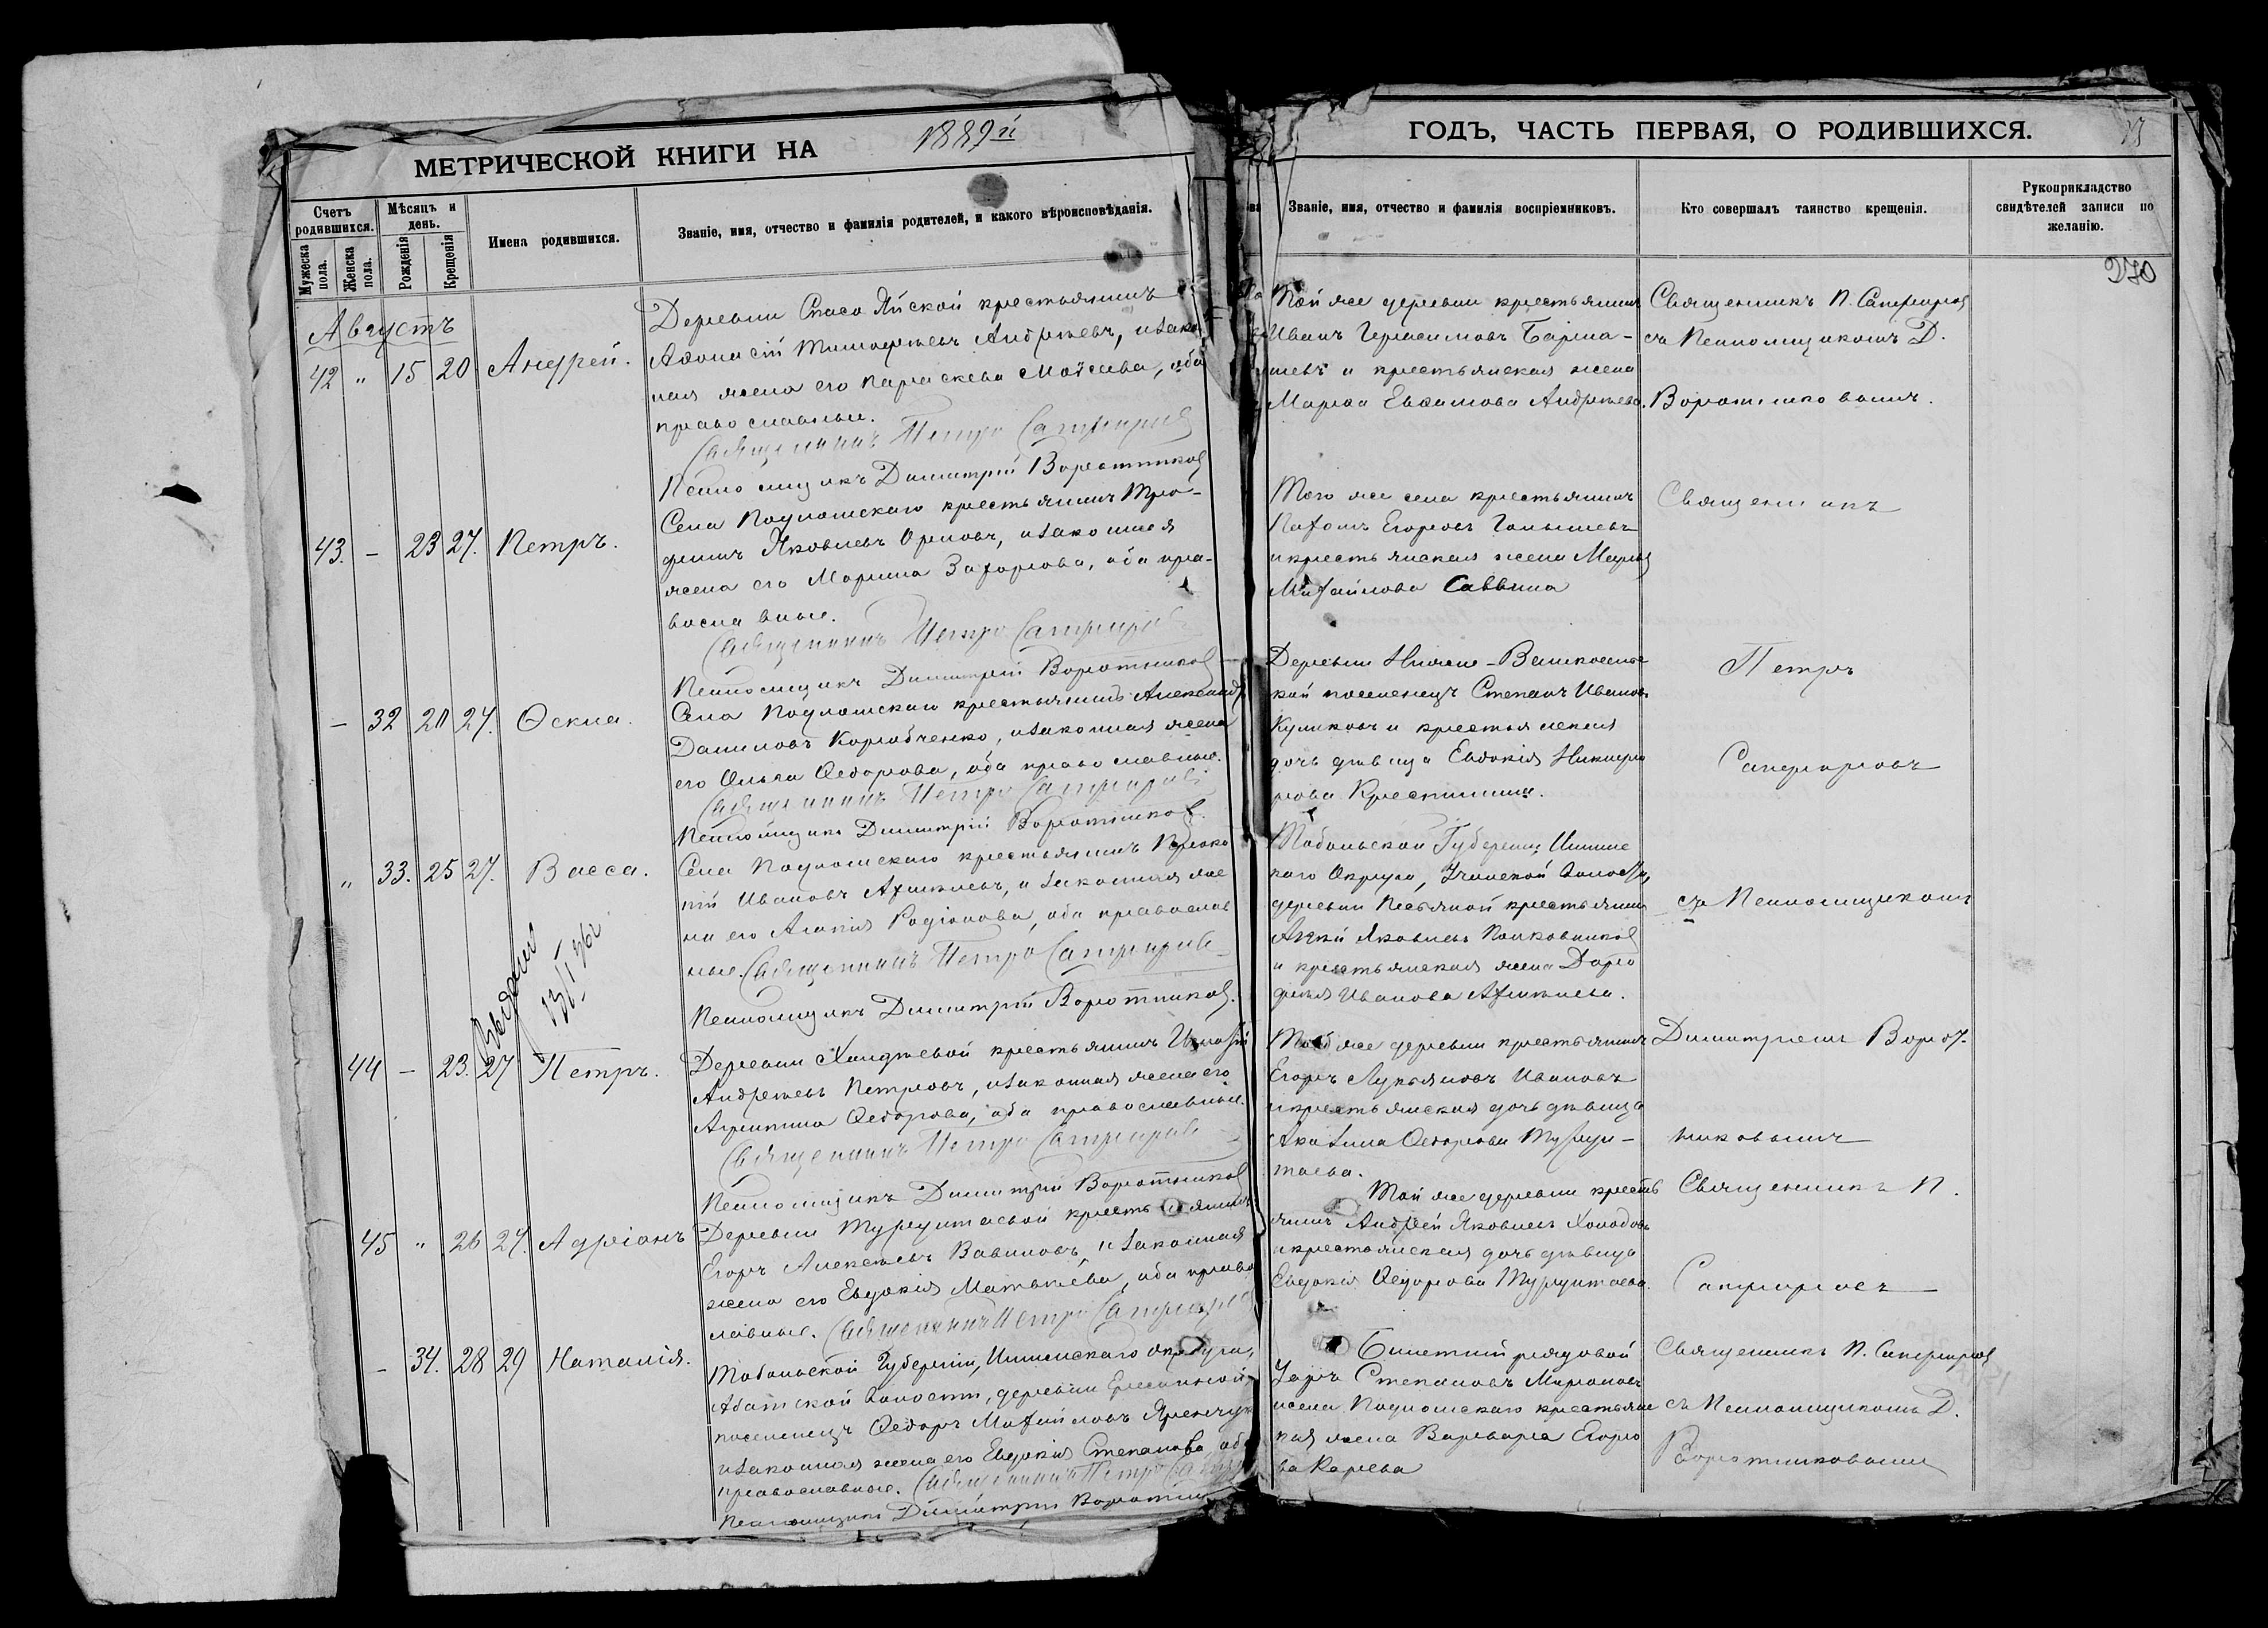 МЕТРИЧЕСКОЙ КНИГИ НА 1889й
ГОДЪ, ЧАСТЬ ПЕРВАЯ, О РОДИВШИХСЯ.
Счетъ родившихся.
Мужеска пола.
Женска пола.
Мѣсяцъ и день.
Рожденія
Крещенія
Имена родившихся.
Званіе, имя, отчество и фамилія родителей, и какого вѣроисповѣданія.
Званіе, имя, отчество и фамилія воспріемниковъ.
Кто совершалъ таинство крещенія.
Рукоприкладство свидѣтелей записи по желанію.
270
Августъ
42 " 15 20 Андрей.
Деревни Спасо Яйской крестьянинъ
Аѳонасій Тимоѳеевъ Андреевъ, и закон
ная жена его Параскева Моѵсеева, оба
православные.
Священникъ Петръ Сапфировъ
Псаломщикъ Димитрій Воротниковъ
Той же деревни крестьянинъ
Иванъ Герасимовъ
и крестьянская жена
Марѳа Евѳимова Андреева.
Священникъ П. Сапфировъ
съ Псаломщикомъ Д.
Воротниковымъ.
43. - 23 27. Петръ.
Села Подломскаго крестьянинъ Тро-
фимъ Яковлевъ Орловъ, и законная
жена его Марина Захарова, оба пра-
вославные.
Священникъ Петръ Сапфировъ
Псаломщикъ Димитрій Воротниковъ
Того же села крестьянинъ
Пахомъ Егоровъ Голышевъ
и крестьянская жена Марья
Михайлова Саввина
Священникъ
- 32 20 27. Ѳекла.
Села Подломскаго крестьянинъ Александръ
Даниловъ Коробченко, и законная жена
его Ольга Ѳедорова, оба православные.
Священникъ Петръ Сапфировъ
Псаломщикъ Димитрій Воротниковъ.
Деревни Нижне-
кой поселенецъ Степанъ Ивановъ
Куликовъ и крестьянская
дочь дѣвица Евдокія Никифо
рова
Петръ
Сапфировъ
" 33. 25 27. Васса.
Села Подломскаго крестьянинъ Проко
пій Ивановъ Афинкаевъ, и законная же
на его Агапія Родіонова, оба православ
ные. Священникъ Петръ Сапфировъ
Псаломщикъ Димитрій Воротниковъ.
Тобольской Губерніи, Ишимс
каго Округа, волости,
деревни Песьяной крестьянинъ
Яковлевъ Полковниковъ
и крестьянская жена Доро
фея Иванова
съ Псаломщикомъ
Выдано
44 - 23. 27 Петръ.
Деревни Халдеевой крестьянинъ
Андреевъ Петровъ, и законная жена его
Агриппина Ѳедорова, оба православные.
Священникъ Петръ Сапфировъ
Псаломщикъ Димитрій Воротниковъ
Той же деревни крестьянинъ
Егоръ Лукьяновъ Ивановъ
и крестьянская дочь дѣвица
Ѳедорова Турун-
таева.
Димитріемъ Ворот-
никовымъ
45 " 26 27. Адріанъ
Деревни Турунтаевой крестьянинъ
Егоръ Алексѣевъ Вавиловъ, и законная
жена его Евдокія Матвѣева, оба право
славные. Священникъ Петръ Сапфировъ
Той же деревни кресть
янинъ Андрей Яковлевъ Холодовъ
и крестьянская дочь дѣвица
Евдокія Ѳедорова Турунтаева.
Священникъ П.
Сапфировъ
- 34. 28 29 Наталія.
Тобольской Губерніи, Ишимскаго округа,
Абатской волости, деревни
поселенецъ Ѳедоръ Михайловъ
и законная жена его Евдокія Степанова, оба
православные. Священникъ Петръ
Псаломщикъ Димитрій
Билетный рядовой
Степановъ Мироновъ
и села Подломскаго крестьянс
кая жена Варвара Егоро
ва Карева
Священникъ П. Сапфировъ
съ Псаломщикомъ Д.
Воротниковымъ